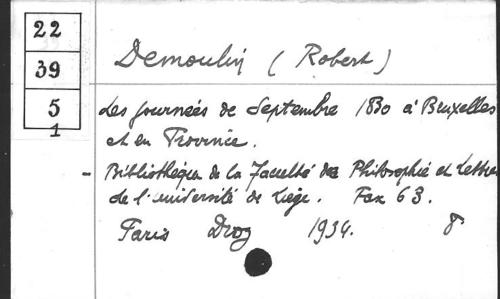 22
39
5
1
Demoulin (Robert)
Les journées de Septembre 1830 à Bruxelles
et en Province.
- Bibliothèque de la Faculté de Philosophie et Lettres
de l'université de Liège. Fax 63.
Paris Droz 1934. 8°